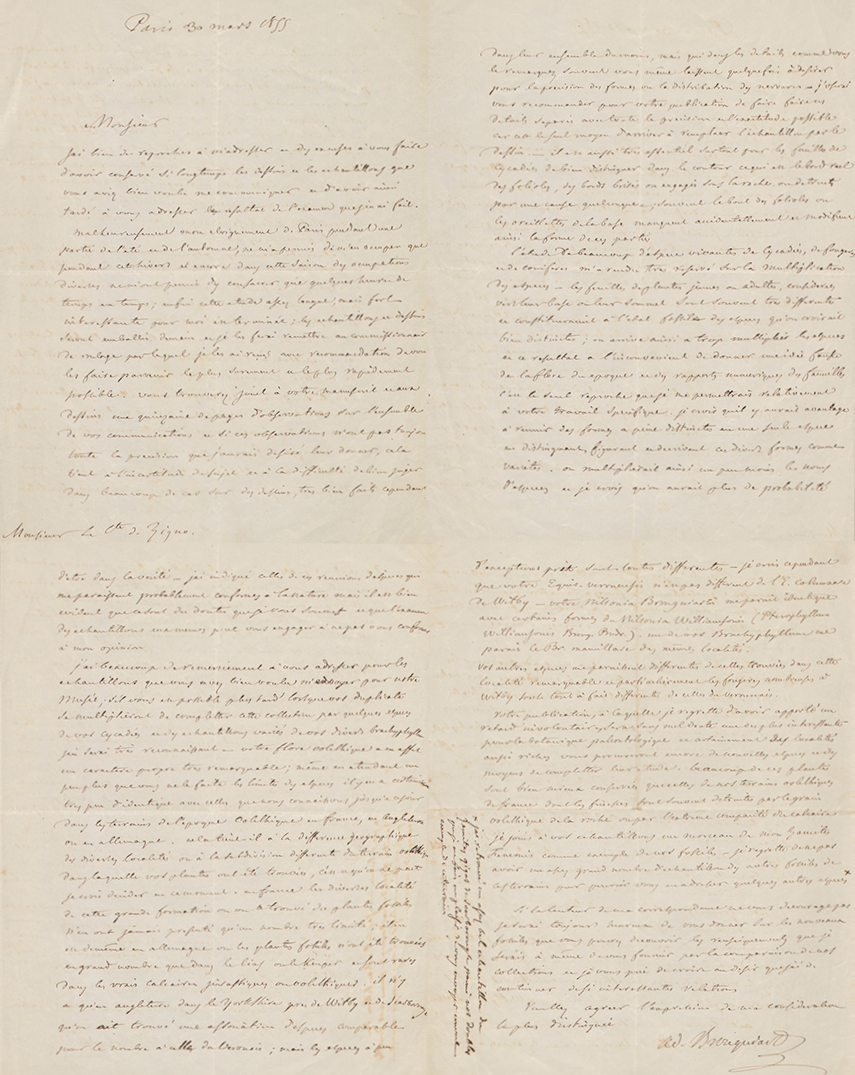 Paris 30 mars 1855
Monsieur
J'ai bien des reproches à m'adresser et des excuses à vous faire
d'avoir conservé si longtemps les dessins et les échantillons que
vous aviez bien voulu me communiquer et d'avoir ainsi
tardé à vous adresser le résultat de l'examen que j'en ai fait.
Malheureusement mon éloignement de Paris pendant une
partie de l'été et de l'automne, ne m'a permis de m'en occuper que
pendant cet hiver et encore dans cette saison des occupations
diverses ne m'ont permis d'y consacrer que quelques heures de
temps en temps; enfin cette étude assez longue, mais fort
intéressante pour moi est terminée; les échantillons et dessins
seront emballés demain et je les ferai remettre au commissionnaire
de roulage par lequel je les ai reçus avec recommandation de vous
les faire parvenir le plus surement et le plus rapidement
possible. Vous trouverez joint à votre manuscrit et aux
dessins une quinzaine de pages d'observations sur l'ensemble
de vos communications et si ces observations n'ont pas toujours
toute la précision que j'aurais désiré leur donner, cela
tient à l'incertitude du sujet et à la difficulté de bien juger
dans beaucoup de cas sur des dessins, très bien faits cependant
Monsieur le Cte de Zigno.
dans leur ensemble du moins, mais qui dans les détails comme vous
le remarquez souvent vous même laissent quelquefois à désirer
pour la précision des formes ou la distribution des nervures — j'oserai
vous recommander pour votre publication de faire faire ces
détails séparés avec toute la précision et l'exactitude possible
car c'est le seul moyen d'arriver à remplacer l'échantillon par le
dessin — il est aussi très essentiel surtout pour les feuilles de
Cycadées de bien distinguer dans le contour ce qui est le bord réel
des folioles, des bords brisés ou engagés dans la roche ou détruits
par une cause quelconque; souvent le bout des folioles ou
les oreillettes de la base manquent accidentellement et modifient
ainsi la forme de ces parties
L'étude de beaucoup d'espèces vivantes de Cycadées, de fougères
et de conifères m'a rendu très réservé sur la multiplication
des espèces — les feuilles des plantes jeunes ou adultes, considérées
vers leur base ou leur sommet sont souvent très différentes
et constitueraient à l'état fossile des espèces qu'on croirait
bien distinctes; on arrive ainsi à trop multiplier les espèces
et ce résultat a l'inconvénient de donner une idée fausse
de la flore d'une époque et des rapports numériques des familles
c'est le seul reproche que je me permettrais relativement
à votre travail spécifique. je crois qu'il y aurait avantage
à réunir des formes à peine distinctes en une seule espèce
en distinguant, figurant et décrivant ces diverses formes comme
variétés. on multiplierait ainsi un peu moins les noms
d'espèces et je crois qu'on aurait plus de probabilité
d'être dans la vérité — j'ai indiqué celles de ces réunions d'espèces qui
me paraissent probablement conformes à la nature mais il est bien
évident que ce sont des doutes que je vous soumets et que l'examen
des échantillons eux mêmes peut vous engager à ne pas vous conformer
à mon opinion
J'ai beaucoup de remerciement à vous adresser pour les
échantillons que vous avez bien voulu m'envoyer pour notre
Musée, s'il vous est possible plus tard lorsque vos duplicata
se multiplieront de completter cette collection par quelques espèces
de vos Cycadées et des échantillons variés de vos divers Brachyphyllum
j'en serai très reconnaissant — votre flore oolithique a en effet
un caractère propre très remarquable; même en étendant un
peu plus que vous ne le faites les limites des espèces il y en a certainement
très peu d'identique avec celles que nous connaissons jusqu'à ce jour
dans les terrains de l'époque oolithique en France, en Angleterre
ou en Allemagne. cela tient-il à la différence géographique
des diverses localités ou à la subdivision différente du terrain oolithique
dans laquelle vos plantes ont été trouvées, c'est ce qu'on ne peut
je crois décider en ce moment. en France les diverses localités
de cette grande formation où on a trouvé des plantes fossiles
n'en ont jamais présenté qu'un nombre très limité; il en
est de même en Allemagne où les plantes fossiles n'ont été trouvées
en grand nombre que dans le lias ou le Keuper et sont rares
dans les vrais calcaires jurassiques ou oolithiques. il n'y
a qu'en angleterre dans le Yorkshire près de Witby et de Scarboroug
qu'on ait trouvé une association d'espèces comparable
pour le nombre à celles du Veronois; mais les espèces à peu
d'exceptions près sont toutes différentes — je crois cependant
que votre Equis. veronense n'est pas différent de l'E. columnare
de Witby — votre Nilsonia Brongniarti me parait identique
avec certaines formes du Nilsonia Williamsonis (Pterophyllum
Williamsonis Brong. Prodr.). un de vos Brachyphyllum me
parait le Br. mamillare des mêmes localités.
Vos autres espèces me paraissent différentes de celles trouvées dans cette
localité remarquable et particulièrement les fougères nombreuses à
Witby sont tout à fait différentes de celles du Veronais.
Votre publication, à laquelle je regrette d'avoir apporté un
retard involontaire, sera sans nul doute une des plus intéressantes
pour la botanique paléontologique et certainement des localités
aussi riches vous procureront encore de nouvelles espèces et des
moyens de completter leur étude. beaucoup de ces plantes
sont bien mieux conservées que celles de nos terrains oolithiques
de France dont les finesses sont souvent détruites par le grain
oolithique de la roche ou par l'extrême compacité du calcaire
je joins à vos échantillons un morceau de mon Zamites
Feneonis comme exemple de nos fossiles — je regrette de ne pas
avoir un assez grand nombre d'échantillons des autres fossiles de
ces terrains pour pouvoir vous en adresser quelques autres espèces ×
Si la lenteur de ma correspondance ne vous décourage pas
je serai toujours heureux de vous donner sur les nouveaux
fossiles que vous pourrez découvrir les renseignements que je
serais à même de vous fournir par la comparaison de nos
collections et je vous prie de croire au désir que j'ai de
continuer de si intéressantes relations
Veuillez agréer l'expression de ma considération
la plus distinguée
ad. Brongniart
× j'ai retrouvé un assez bel échantillon du
Zamites gigas de Scarborough parmi nos doubles